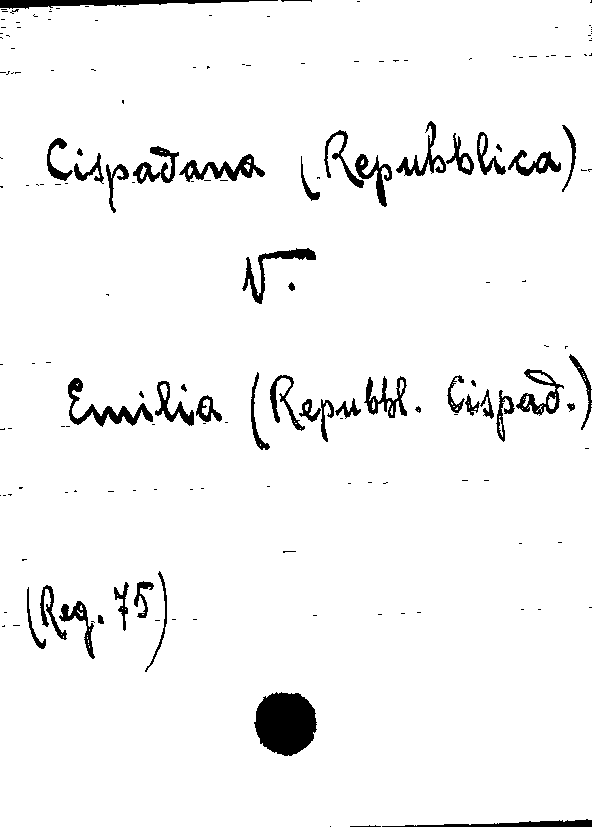 Cispadana (Repubblica)
V.
Emilia (Repubbl. Cispad.)
(Reg. 75)